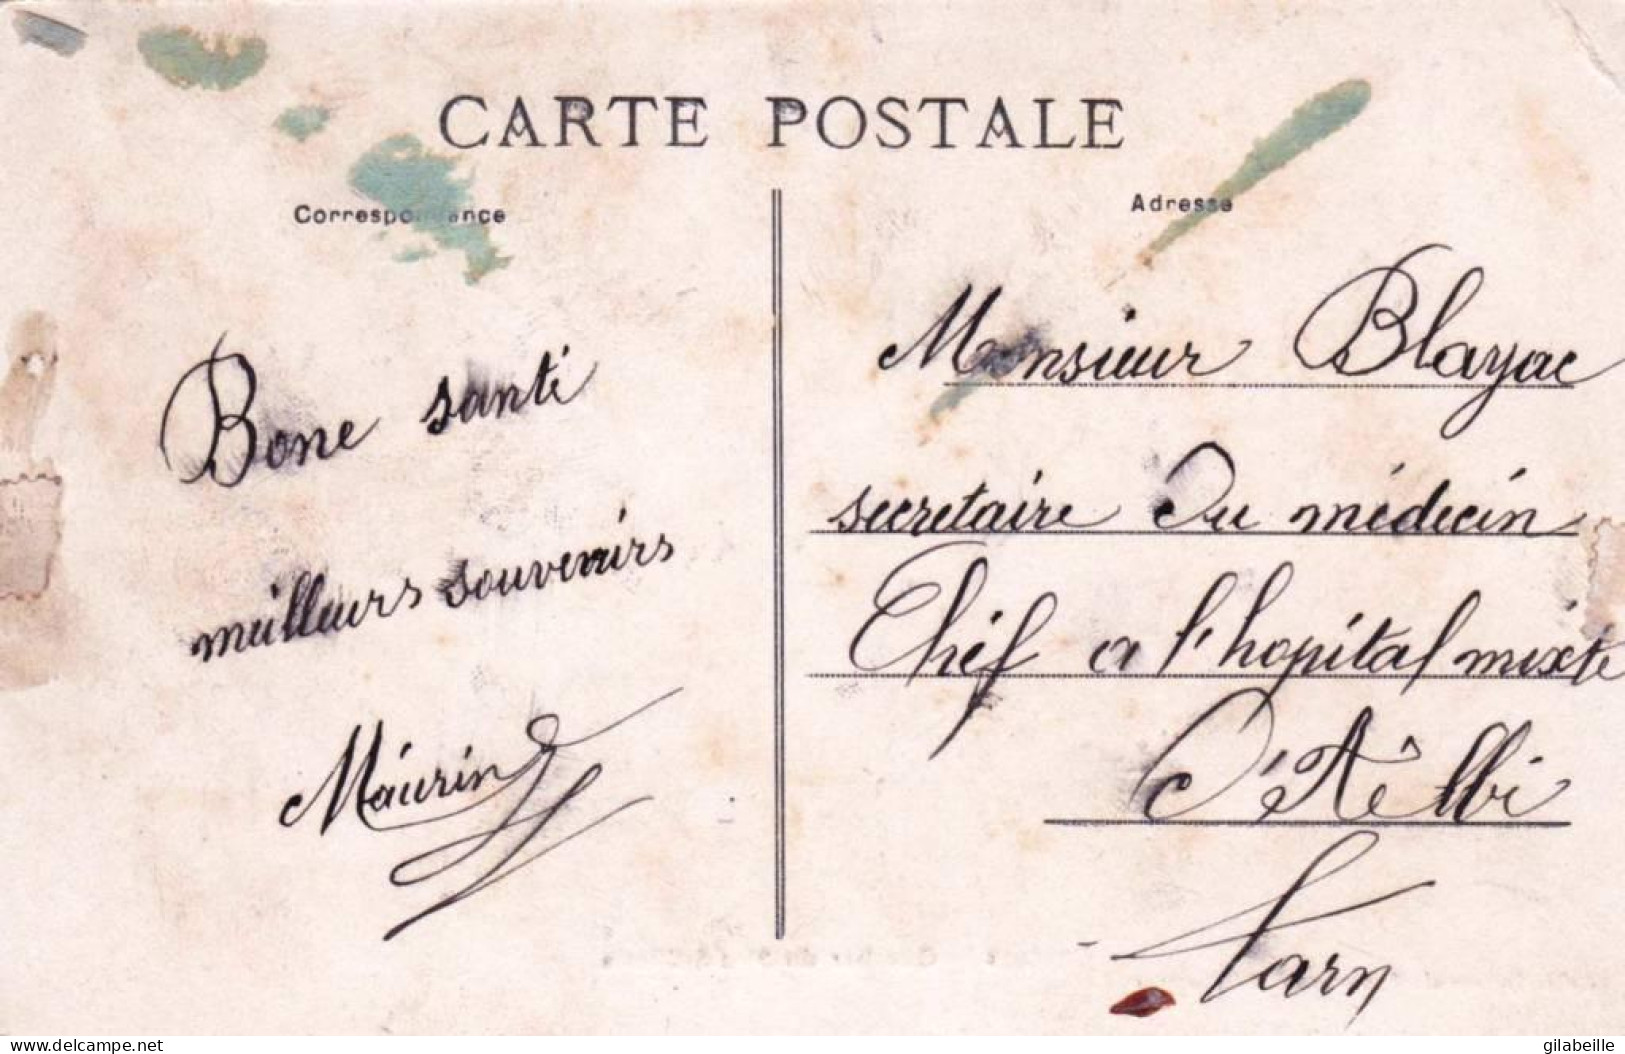 CARTE POSTALE
Correspondance
Adresse
Bone santé
meilleurs souvenirs
Maurin
Monsieur Blayac
secretaire du médecin
Chéf a l'hopital mixte
d'Albi
Tarn
delcampe.net
gilabeille